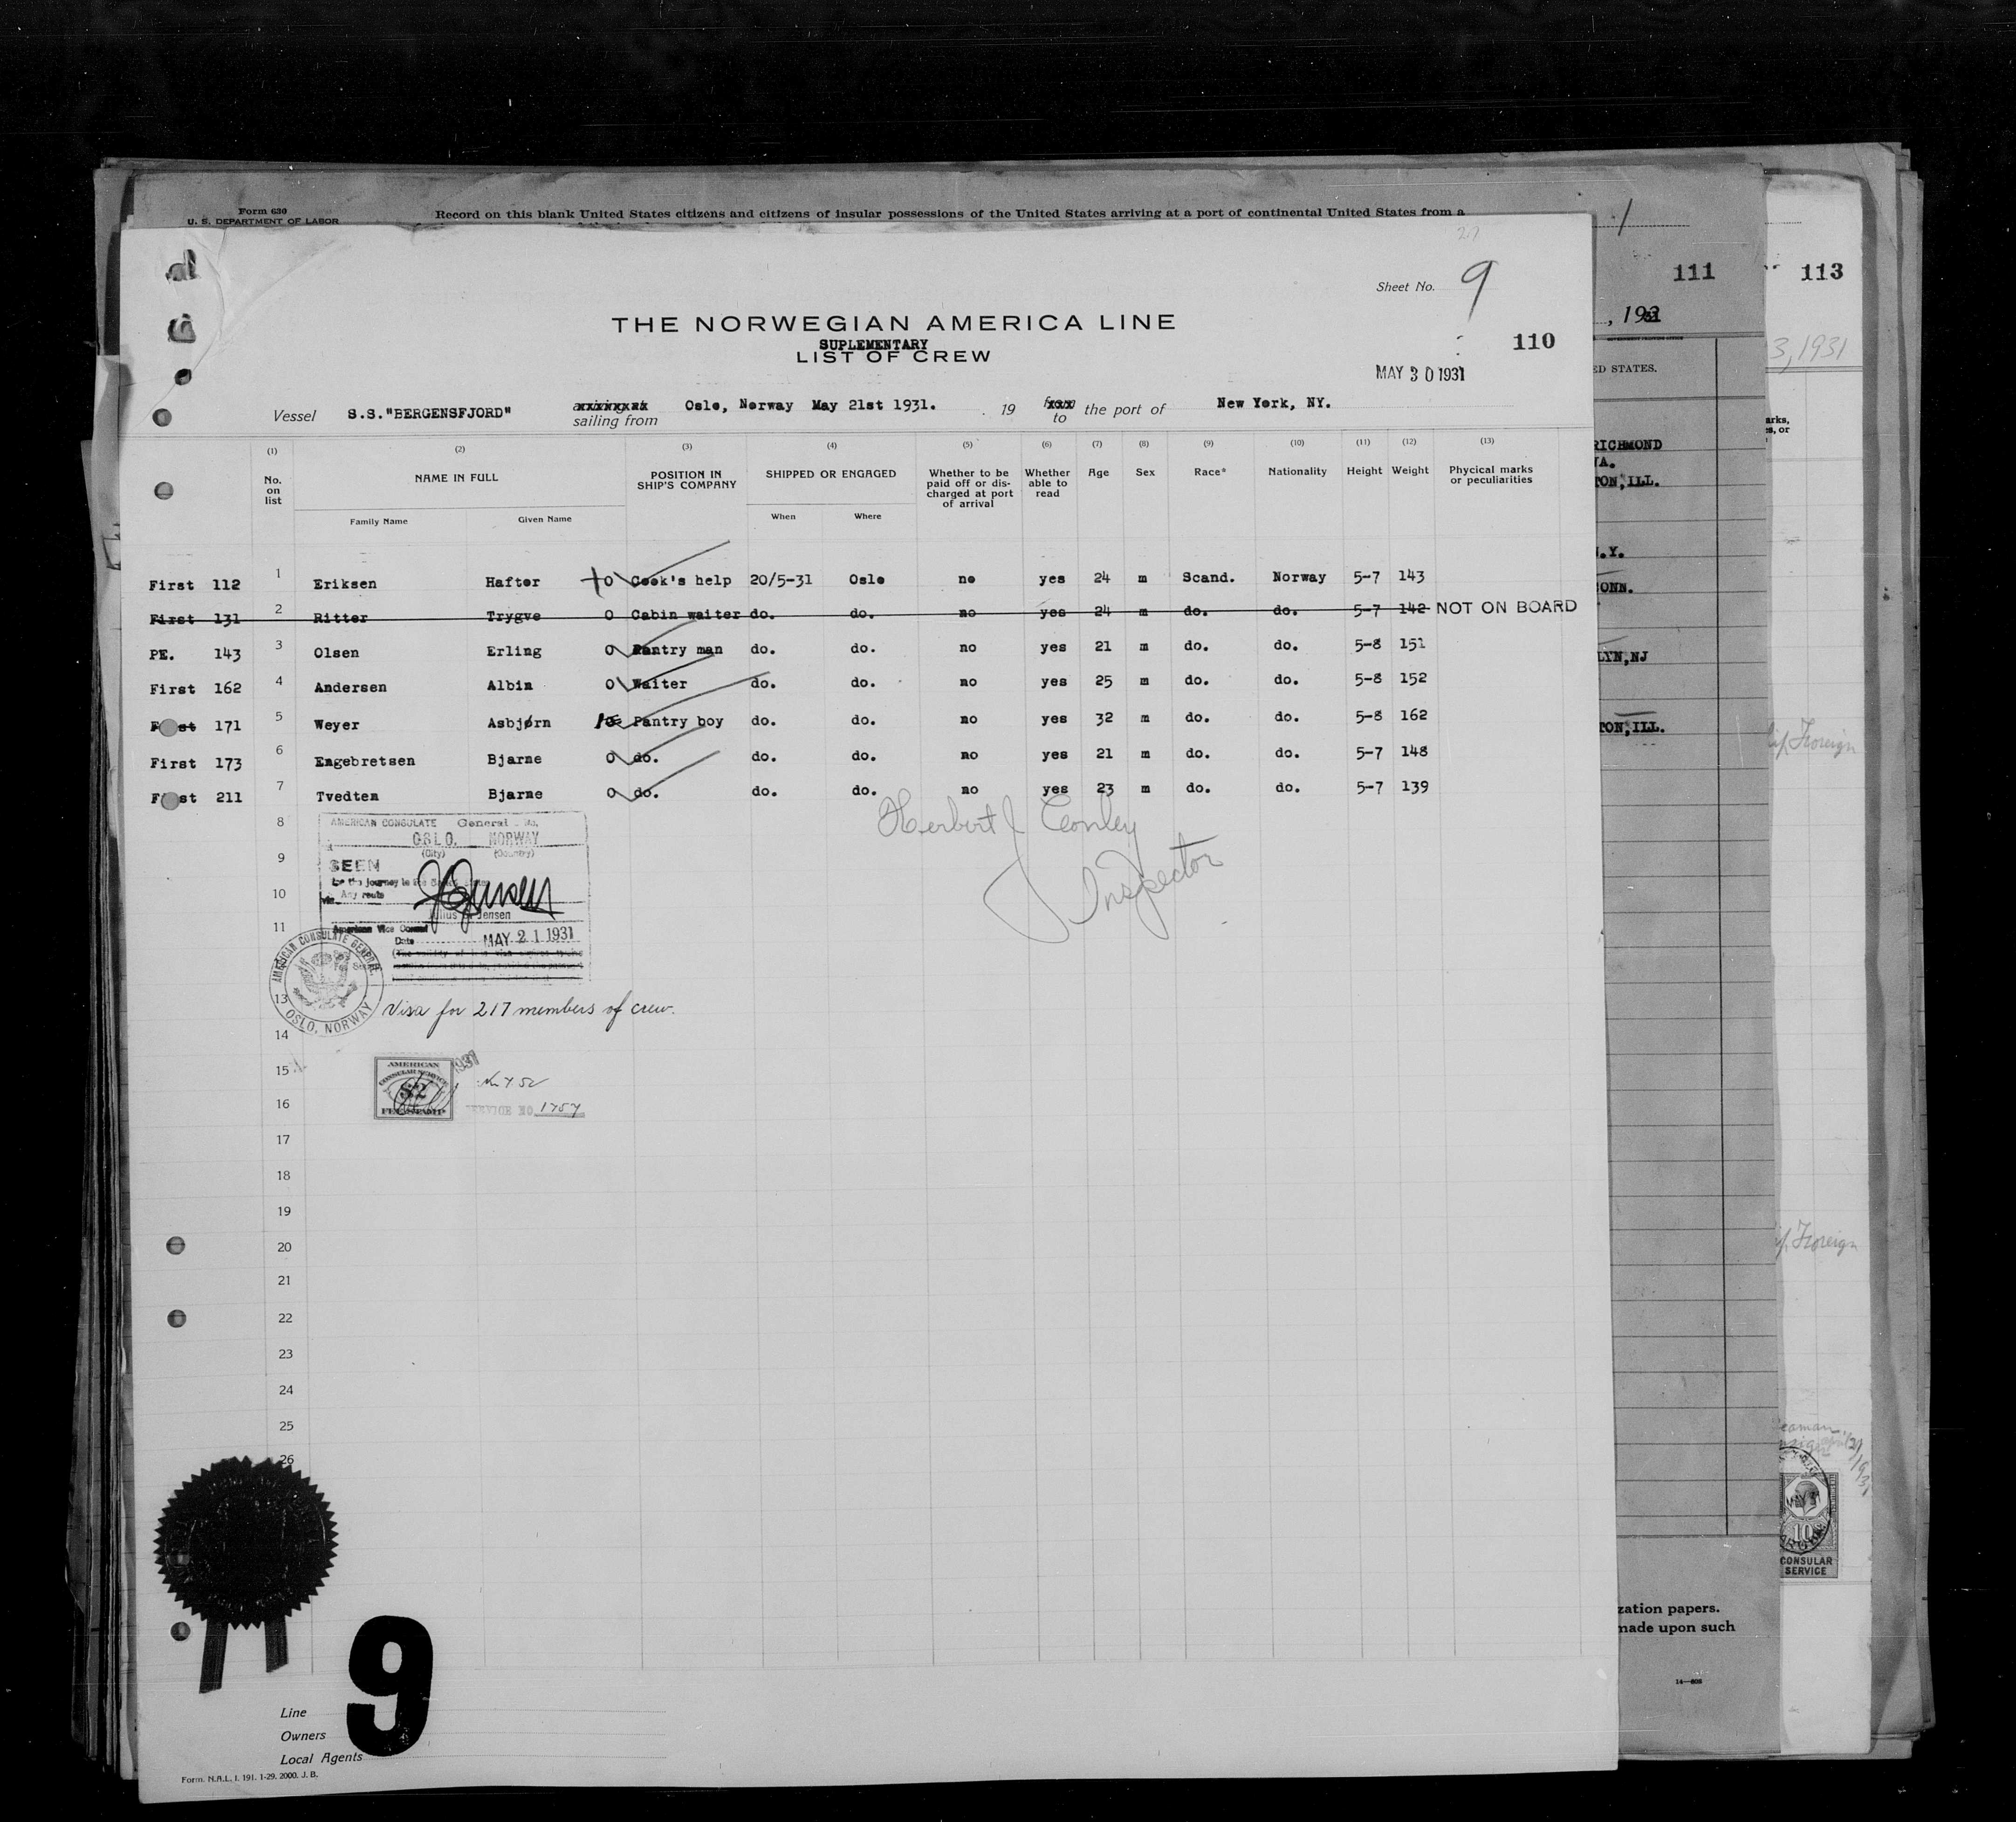 Form 630
U. S. DEPARTMENT OF LABOR
Record on this blank United States citizens and citizens of insular possessions of the United States arriving at a port of continental United States from a
27
Sheet No. 9
THE NORWEGIAN AMERICA LINE
SUPLEMENTARY
LIST OF CREW
110
MAY 30 1931
Vessel S.S."BERGENSFJORD" sailing from Oslo, Norway May 21st 1931. 19 to the port of New York, NY.
(1) (2) (3) (4) (5) (6) (7) (8) (9) (10) (11) (12) (13)
No. on list NAME IN FULL POSITION IN SHIP'S COMPANY SHIPPED OR ENGAGED Whether to be paid off or discharged at port of arrival Whether able to read Age Sex Race* Nationality Height Weight Phycical marks or peculiarities
Family Name Given Name When Where
First 112 1 Eriksen Haftor +0 Cook's help 20/5-31 Oslo no yes 24 m Scand. Norway 5-7 143
First 131 2 Ritter Trygve 0 Cabin waiter do. do. no yes 24 m do. do. 5-7 142 NOT ON BOARD
PE. 143 3 Olsen Erling 0 Pantry man do. do. no yes 21 m do. do. 5-8 151
First 162 4 Andersen Albin 0 Waiter do. do. no yes 25 m do. do. 5-8 152
First 171 5 Weyer Asbjørn Pantry boy do. do. no yes 32 m do. do. 5-8 162
First 173 6 Engebretsen Bjarne 0 do. do. do. no yes 21 m do. do. 5-7 148
First 211 7 Tvedten Bjarne 0 do. do. do. no yes 23 m do. do. 5-7 139
Herbert J Conley
Inspector
8
9
10
11
13
14
15
16
17
18
19
20
21
22
23
24
25
26
AMERICAN CONSULATE General
OSLO. NORWAY
(City) (Country)
SEEN
for the journey to the United States
via Any route
Julius Jensen
American Vice Consul
Date MAY 21 1931
AMERICAN CONSULATE GENERAL.
OSLO, NORWAY
Visa for 217 members of crew.
AMERICAN
CONSULAR SERVICE
$2
FEE STAMP
1931
SERVICE NO 1757
9
Line
Owners
Local Agents
Form. N.A.L. I. 191. 1-29. 2000. J. B.
111
, 1931
ED STATES.
RICHMOND
VA.
TON, ILL.
N.Y.
CONN.
LYN, NJ
TON, ILL.
zation papers.
made upon such
113
3, 1931
arks,
es, or
Foreign
Foreign
10
CONSULAR
SERVICE